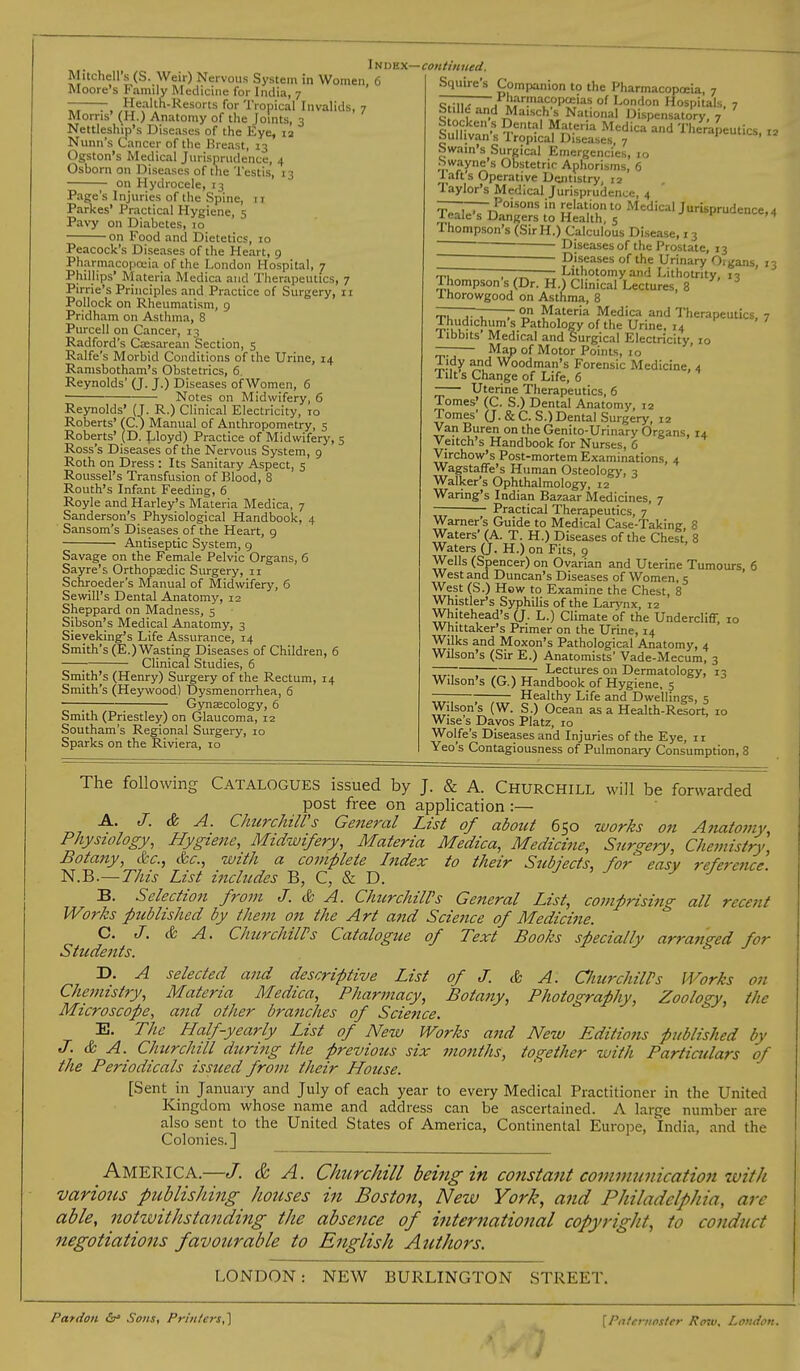 INDEX—continued.
Mitchell's (S. Weir) Nervous System in Women, 6
Moore's Family Medicine for India, 7
——— Health-Resorts for Tropical Invalids, 7
Morris' (H.) Anatomy of the Joints, 3
Nettleship's Diseases of the Eye, 12
Nunn's Cancer of the Breast, 13
Ogston's Medical Jurisprudence, 4
Osborn on Diseases of the Testis, 13
——— on Hydrocele, 13
Page's Injuries of the Spine, 11
Parkes' Practical Hygiene, 5
Pavy on Diabetes, 10
——— on Food and Dietetics, 10
Peacock's Diseases of the Heart, 9
Pharmacopœia of the London Hospital, 7
Phillips' Materia Medica and Therapeutics, 7
Pirrie's Principles and Practice of Surgery, 11
Pollock on Rheumatism, 9
Pridham on Asthma, 8
Purcell on Cancer, 13
Radford's Cæsarean Section, 5
Ralfe's Morbid Conditions of the Urine, 14
Ramsbotham's Obstetrics, 6
Reynolds' (J. J.) Diseases of Women, 6
——— Notes on Midwifery, 6
Reynolds' (J. R.) Clinical Electricity, 10
Roberts' (C.) Manual of Anthropometry, 5
Roberts' (D. Lloyd) Practice of Midwifery, 5
Ross's Diseases of the Nervous System, 9
Roth on Dress : Its Sanitary Aspect, 5
Roussel's Transfusion of Blood, 8
Routh's Infant Feeding, 6
Royle and Harley's Materia Medica, 7
Sanderson's Physiological Handbook, 4
Sansom's Diseases of the Heart, 9
——— Antiseptic System, 9
Savage on the Female Pelvic Organs, 6
Sayre's Orthopædic Surgery, 11
Schroeder's Manual of Midwifery, 6
Sewill's Dental Anatomy, 12
Sheppard on Madness, 5
Sibson's Medical Anatomy, 3
Sieveking's Life Assurance, 14
Smith's (E.) Wasting Diseases of Children, 6
——— Clinical Studies, 6
Smith's (Henry) Surgery of the Rectum, 14
Smith's (Heywood) Dysmenorrhea, 6
——— Gynæcology, 6
Smith (Priestley) on Glaucoma, 12
Southam's Regional Surgery, 10
Sparks on the Riviera, 10
Squire's Companion to the Pharmacopœia, 7
——— Pharmacopœias of London Hospitals, 7
Stillé and Maisch's National Dispensatory, 7
Stocken's Dental Materia Medica and Therapeutics, 12
Sullivan's Tropical Diseases, 7
Swain's Surgical Emergencies, 10
Swayne's Obstetric Aphorisms, 6
Taft's Operative Dentistry, 12
Taylor's Medical Jurisprudence, 4
——— Poisons in relation to Medical Jurisprudence, 4
Teale's Dangers to Health, 5
Thompson's (Sir H.) Calculous Disease, 13
——— Diseases of the Prostate, 13
——— Diseases of the Urinary Organs, 13
——— Lithotomy and Lithotrity, 13
Thompson's (Dr. H.) Clinical Lectures, 8
Thorowgood on Asthma, 8
——— on Materia Medica and Therapeutics, 7
Thudichum's Pathology of the Urine, 14
Tibbits' Medical and Surgical Electricity, 10
——— Map of Motor Points, 10
Tidy and Woodman's Forensic Medicine, 4
Tilt's Change of Life, 6
——— Uterine Therapeutics, 6
Tomes' (C. S.) Dental Anatomy, 12
Tomes' (J. & C. S.) Dental Surgery, 12
Van Buren on the Genito-Urinary Organs, 14
Veitch's Handbook for Nurses, 6
Virchow's Post-mortem Examinations, 4
Wagstaffe's Human Osteology, 3
Walker's Ophthalmology, 12
Waring's Indian Bazaar Medicines, 7
——— Practical Therapeutics, 7
Warner's Guide to Medical Case-Taking, 8
Waters' (A. T. H.) Diseases of the Chest, 8
Waters (J. H.) on Fits, 9
Wells (Spencer) on Ovarian and Uterine Tumours, 6
West and Duncan's Diseases of Women, 5
West (S.) How to Examine the Chest, 8
Whistler's Syphilis of the Larynx, 12
Whitehead's (J. L.) Climate of the Undercliff, 10
Whittaker's Primer on the Urine, 14
Wilks and Moxon's Pathological Anatomy, 4
Wilson's (Sir E.) Anatomists' Vade-Mecum, 3
——— Lectures on Dermatology, 13
Wilson's (G.) Handbook of Hygiene, 5
——— Healthy Life and Dwellings, 5
Wilson's (W. S.) Ocean as a Health-Resort, 10
Wise's Davos Platz, 10
Wolfe's Diseases and Injuries of the Eye, 11
Yeo's Contagiousness of Pulmonary Consumption, 8
The following CATALOGUES issued by J. & A. CHURCHILL will be forwarded
post free on application :—
A. J. & A. Churchill's General List of about 650 works on Anatomy,
Physiology, Hygiene, Midwifery, Materia Medica, Medicine, Surgery, Chemistry,
Botany, &c., &c., with a complete Index to their Subjects, for easy reference.
N.B.—This List includes B, C, & D.
B. Selection from J. & A. Churchill's General List, comprising all recent
Works published by them on the Art and Science of Medicine.
C. J. & A. Churchill's Catalogue of Text Books specially arranged for
Students.
D. A selected and descriptive List of J. & A. Churchill's Works on
Chemistry, Materia Medica, Pharmacy, Botany, Photography, Zoology, the
Microscope, and other branches of Science.
E. The Half-yearly List of New Works and New Editions published by
J. & A. Churchill during the previous six months, together with Particulars of
the Periodicals issued from their House.
[Sent in January and July of each year to every Medical Practitioner in the United
Kingdom whose name and address can be ascertained. A large number are
also sent to the United States of America, Continental Europe, India, and the
Colonies.]
AMERICA.—J. & A. Churchill being in constant communication with
various publishing houses in Boston, New York, and Philadelphia, are
able, notwithstanding the absence of international copyright, to conduct
negotiations favourable to English Authors.
LONDON: NEW BURLINGTON STREET.
Pardon & Sons, Printers,] [Paternoster Row, London.